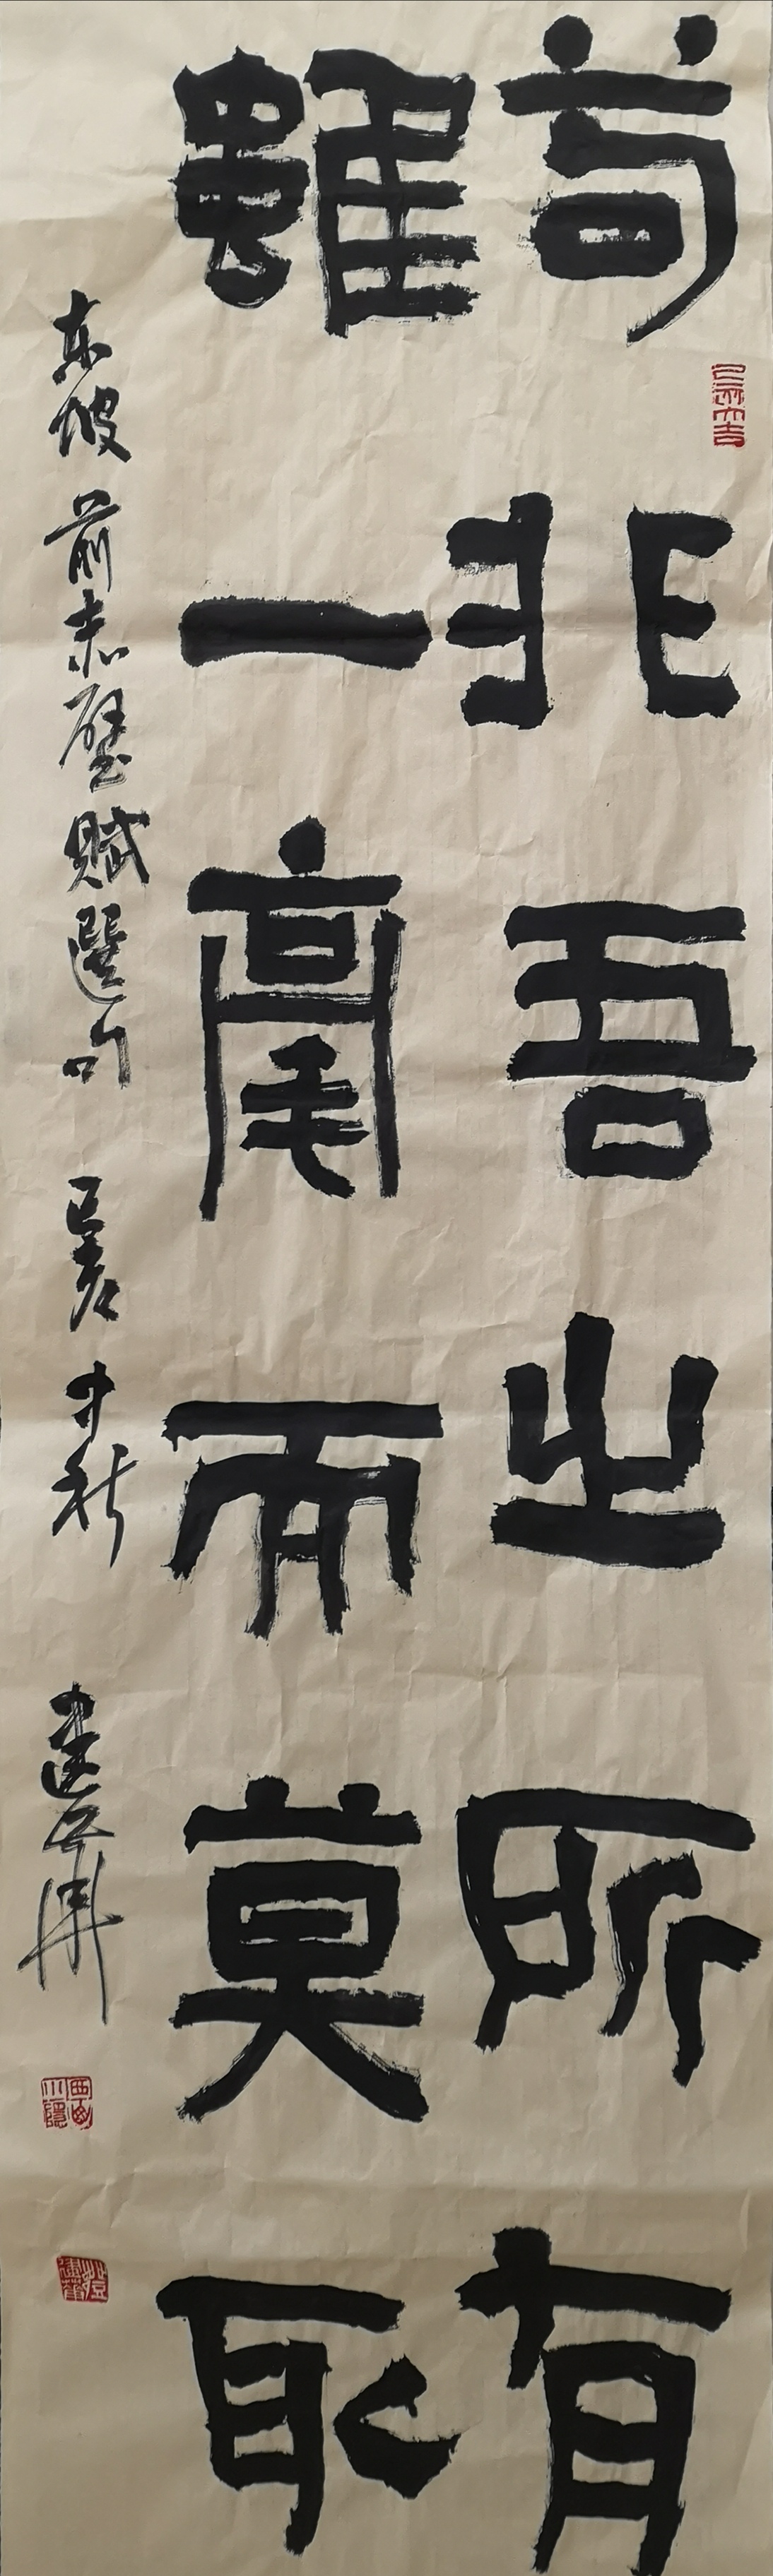 苟非吾之所有
雖一毫而莫取
东坡前赤壁赋選句 己亥中秋 建華